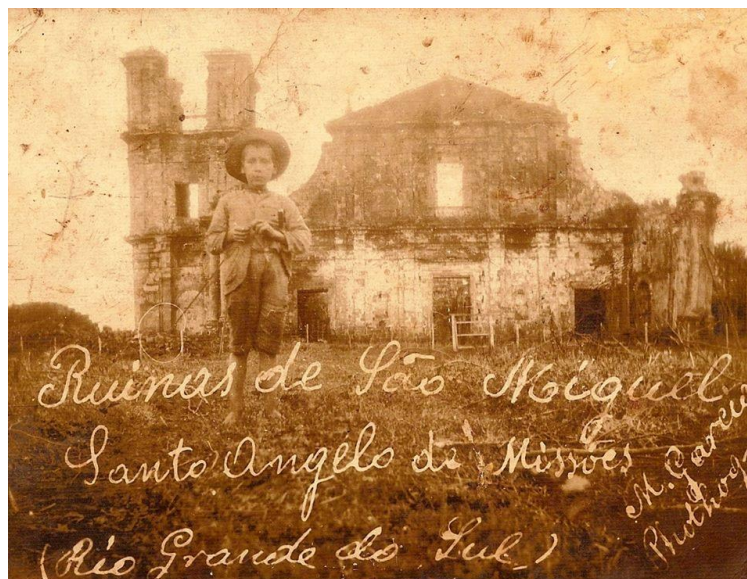 Ruinas de São Miguel
Santo Angelo de Missões
(Rio Grande do Sul)
M. Garcia